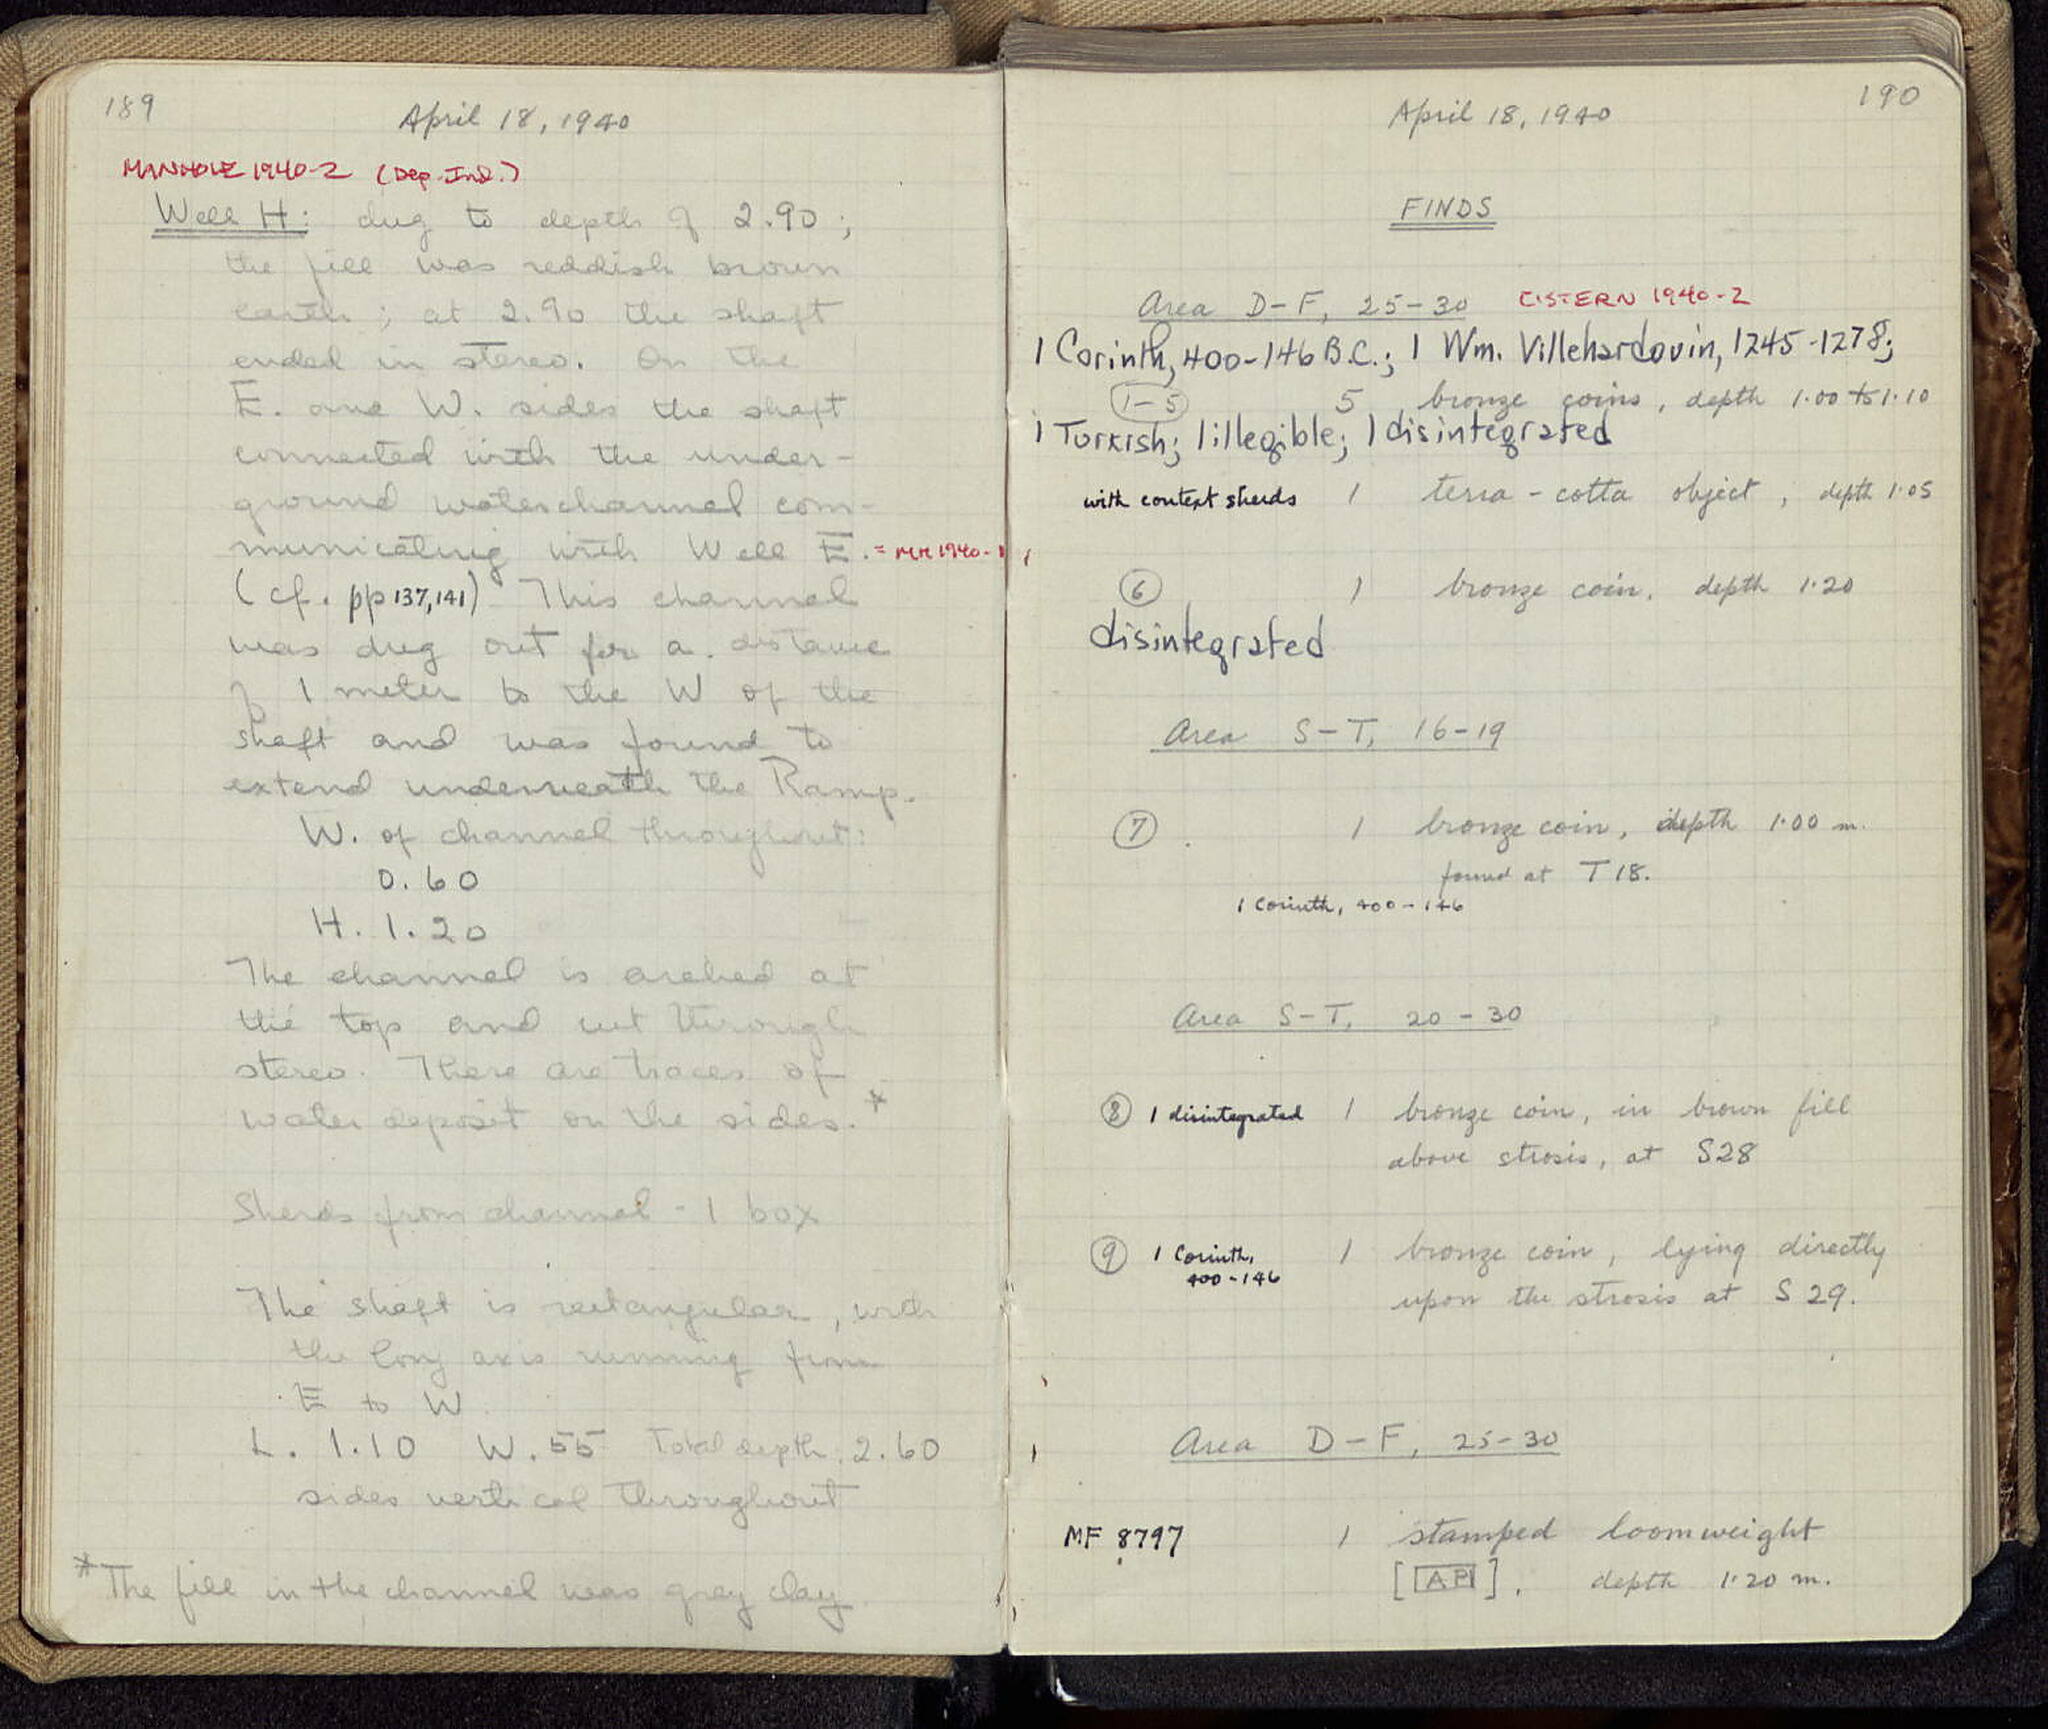 189
April 18, 1940
MANHOLE 1940-2 (Dep. Ind.)
Well H: dug to depth of 2.90;
the fill was reddish brown
earth; at 2.90 the shaft
ended in stereo. On the
E. and W. sides the shaft
connected with the under-
ground waterchannel com-
municating with Well E. = MH 1940-1
(cf. pp 137, 141) This channel
was dug out for a distance
of 1 meter to the W of the
shaft and was found to
extend underneath the Ramp.
W. of channel throughout:
0.60
H. 1.20
The channel is arched at
the top and cut through
stereo. There are traces of
water deposit on the sides. *
Sherds from channel - 1 box
The shaft is rectangular, with
the long axis running from
E to W.
L. 1.10 W. 55 Total depth 2.60
sides vertical throughout
* The fill in the channel was grey clay
190
April 18, 1940
FINDS
Area D-F, 25-30 CISTERN 1940-2
1 Corinth, 400-146 B.C.; 1 Wm. Villehardouin, 1245-1278;
1-5 5 bronze coins, depth 1.00 to 1.10
1 Turkish; 1 illegible; 1 disintegrated
with context sherds 1 terra-cotta object, depth 1.05
6 1 bronze coin, depth 1.20
disintegrated
Area S-T, 16-19
7 1 bronze coin, depth 1.00 m.
found at T 18.
1 Corinth, 400-146
Area S-T, 20-30
8 1 disintegrated 1 bronze coin, in brown fill
above strosis, at S28
9 1 Corinth, 1 bronze coin, lying directly
400-146
upon the strosis at S 29.
Area D-F, 25-30
MF 8797 1 stamped loomweight
[AP]. depth 1.20 m.